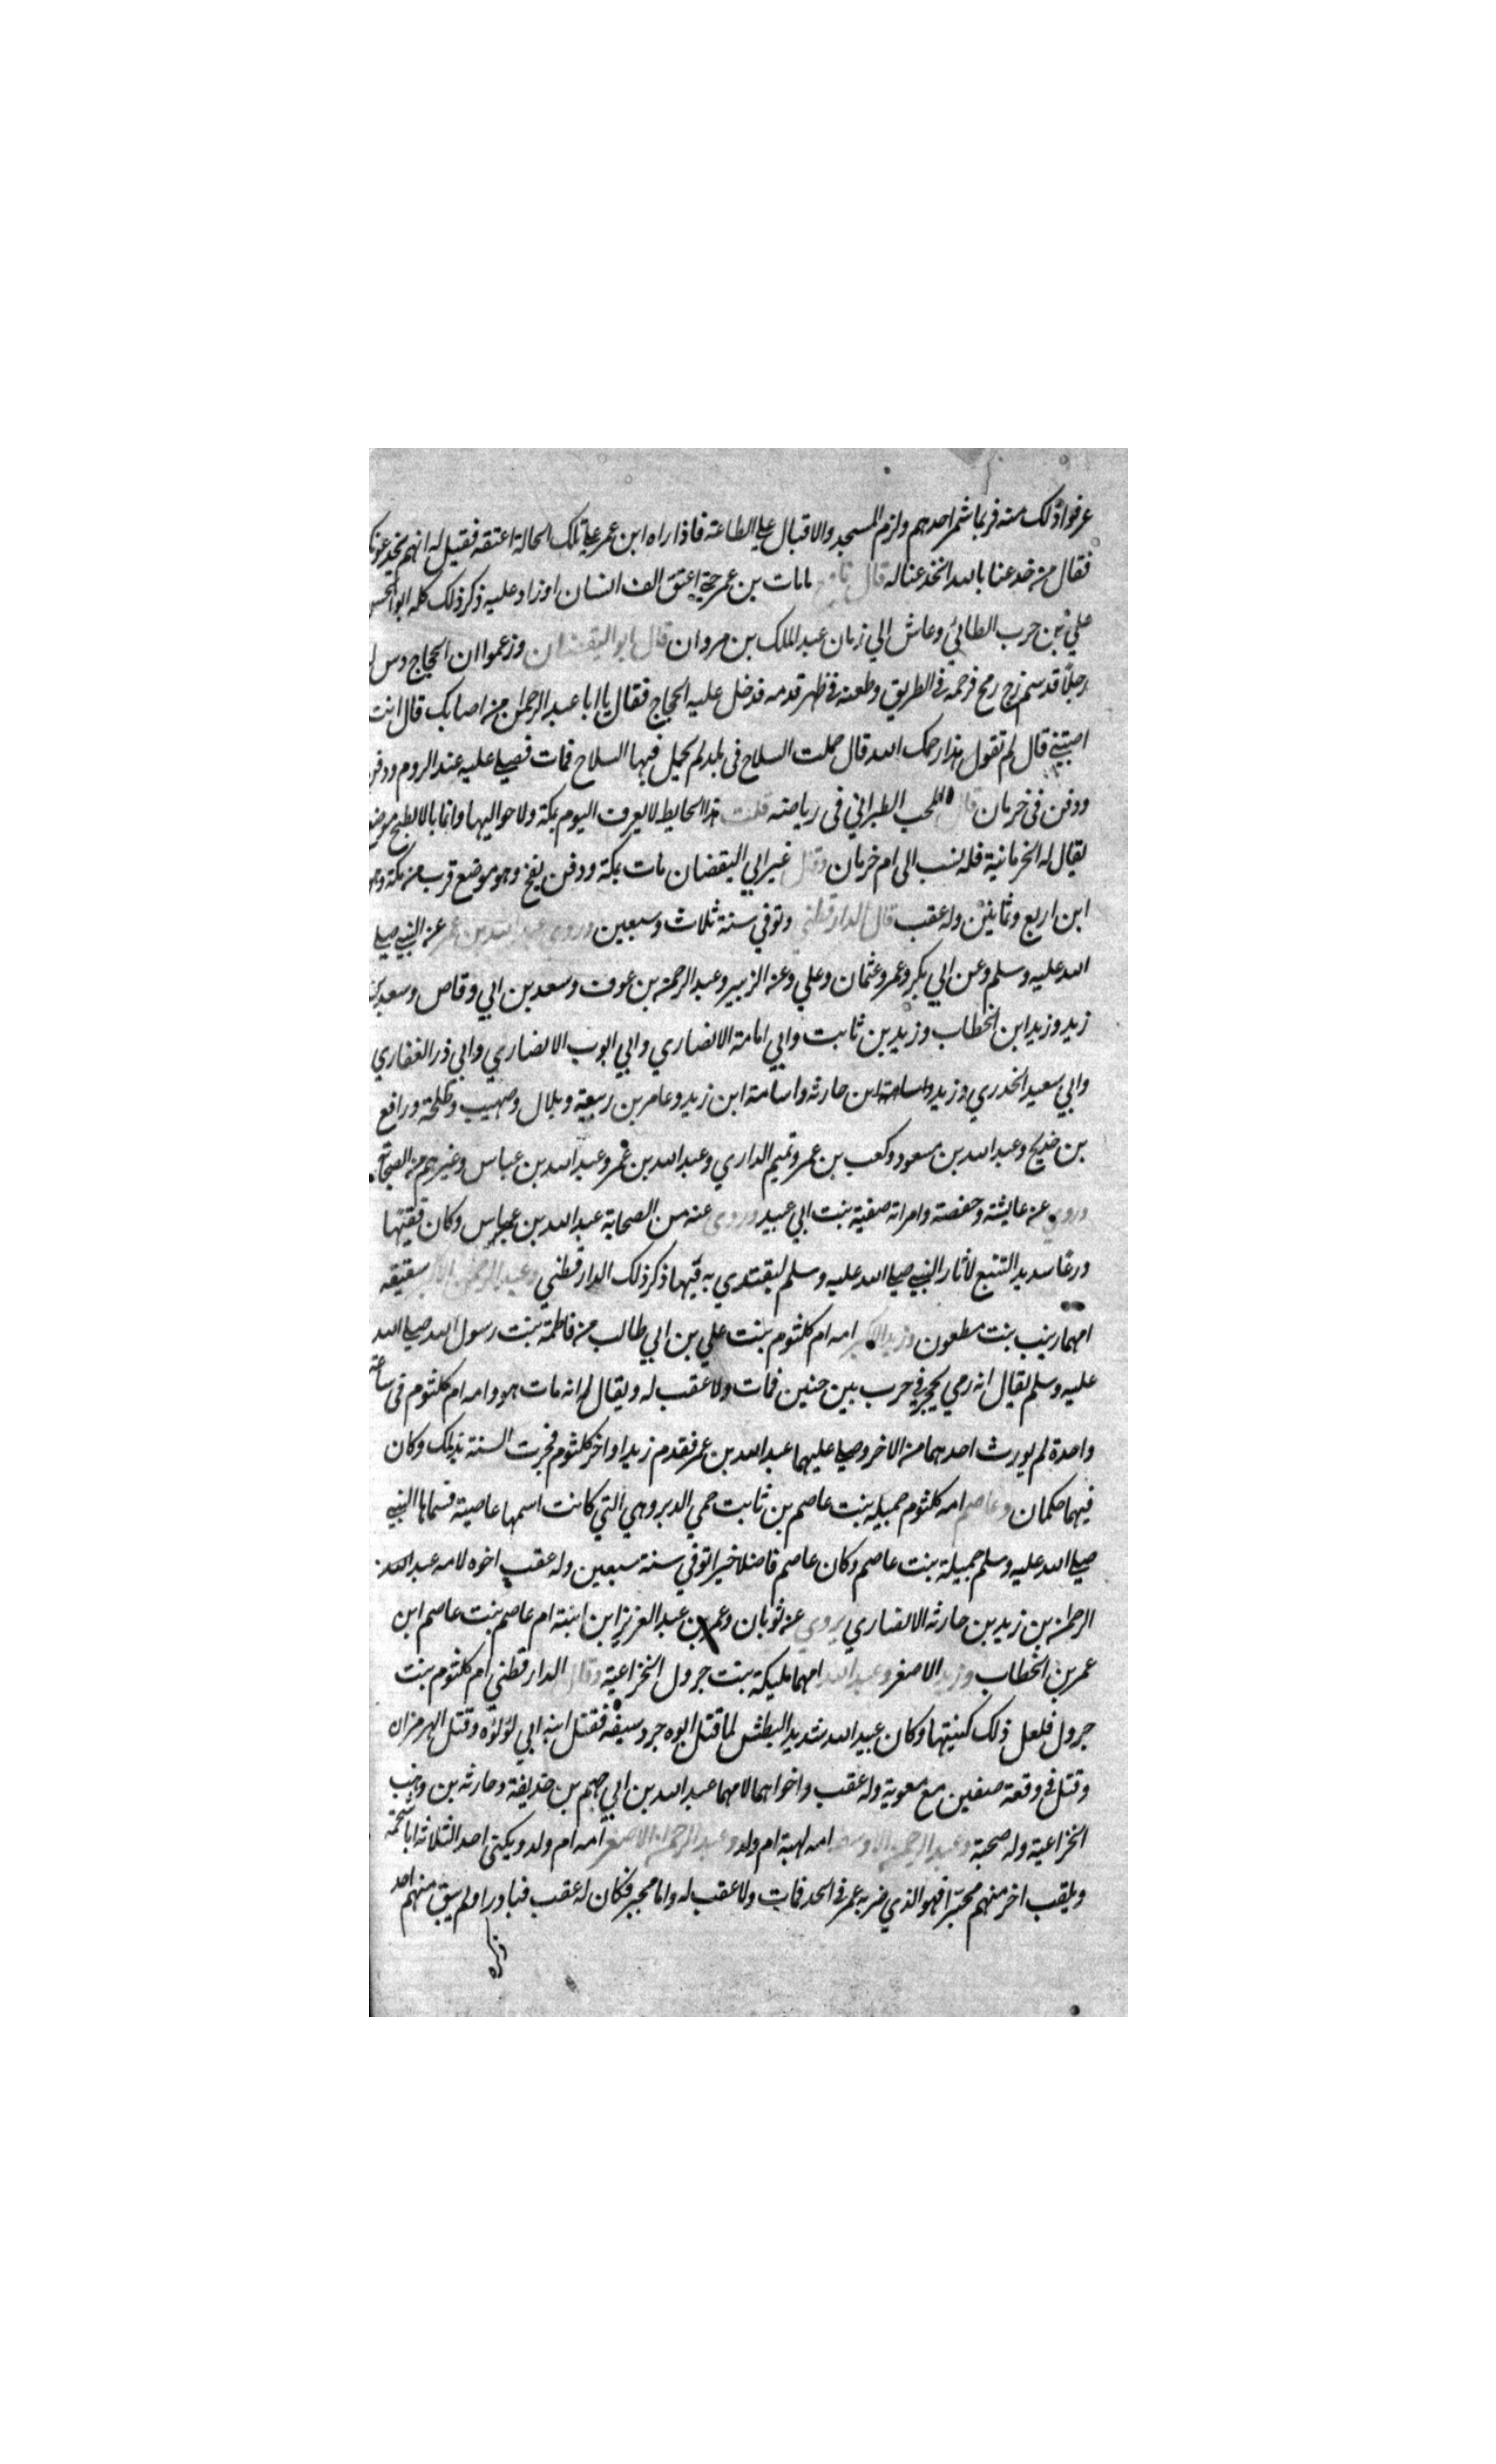 عرفوا ذلك منه فربما شمر احدهم ولزم المسجد والاقبال علي الطاعة فاذا راه ابن عمر علي تلك الحالة اعتقه فقيل له انهم يخدعونك
فقال من خدعنا بالله انخدعنا له قال نافع مامات بن عمر حتي اعتق الف انسان اوزاد عليه ذكر ذلك كله ابو الحسن
علي بن حرب الطائي وعاش الي زمان عبد الملك بن مروان قال ابو اليقضان وزعموا ان الحجاج دس له
رجلا قد سم زج رمح فرحمه في الطريق وطعنه في ظهر قدمه فدخل عليه الحجاج فقال يا ابا عبد الرحمن من اصابك قال انت
اصبتني قال لم تقول هذا رحمك الله قال حملت السلاح في بلد لم يحمل فيها السلاح فمات فصلي عليه عند الروم ودفن
ودفن في خرمان قال المحب الطبراني في رياضه قلت هذا الحايط لا يعرف اليوم بمكة ولا حواليها وانما بالابطح موضع
يقال له الخرمانية فلعله نسب الى ام خرمان وقال غير ابي اليقضان مات بمكة ودفن بفخ وهو موضع قرب من مكة وهو
ابن اربع وثمانين وله عقب قال الدارقطني وتوفي سنة ثلاث وسبعين وروى عبد الله بن عمر عن النبي صلي
الله عليه وسلم وعن ابي بكر وعمر وعثمان وعلي وعن الزبير وعبد الرحمن بن عوف وسعد بن ابي وقاص وسعيد بن
زيد وزيد ابن الخطاب وزيد بن ثابت وابي امامة الانصاري وابي ايوب الانصاري وابي ذر الغفاري
وابي سعيد الخدري وزيد واسامة ابن حارثه واسامة ابن زيد وعامر بن ربيعة وبلال وصهيب وطلحة ورافع
بن خديج وعبد الله بن مسعود وكعب بن عمر وتميم الداري وعبد الله بن عمر وعبد الله بن عباس وغيرهم من الصحابة
وروي عن عايشة وحفصة وامراته صفية بنت ابي عبيد وروى عنه من الصحابة عبد الله بن عباس وكان فقيها
ورعا سديد التتبع لاثار النبي صلي الله عليه وسلم ليقتدي به فيها ذكر ذلك الدارقطني وعبد الرحمن الاكبر سقيقه
امهما زينب بنت مطعون وزيد الاكبر امه ام كلثوم بنت علي بن ابي طالب من فاطمة بنت رسول الله صلي الله
عليه وسلم يقال انه رمي بحجر في حرب بين حنين فمات ولا عقب له ويقال له انه مات هو وامه ام كلثوم في ساعة
واحدة لم يورث احدهما من الاخر وصلي عليهما عبد الله بن عمر فقدم زيدا واخر كلثوم فجرت السنة بذلك وكان
فيهما حكمان وعاصم امه كلثوم جميله بنت عاصم بن ثابت حمي الدبر وهي التي كانت اسمها عاصية فسماها النبي
صلي الله عليه وسلم جميلة بنت عاصم وكان عاصم فاضلا خيرا توفي سنة سبعين وله عقب اخوه لامه عبد الله
الرحمن بن زيد بن حارثه الانصاري يروي عن ثوبان وعمر بن عبد العزيز ابن ابنته ام عاصم بنت عاصم ابن
عمر بن الخطاب وزيد الاصغر وعبد الله امهما مليكة بنت جرول الخزاعية وقال الدارقطني ام كلثوم بنت
جرول فلعل ذلك كنيتها وكان عبيد الله شديد البطش لما قتل ابوه جرد سيفه فقتل ابنة ابي لؤلؤه وقتل الهرمزان
وقتل في وقعة صفين مع معوية وله عقب واخواهما لامهما عبد الله بن ابي جهم بن حذيفة وحارثه بن وهب
الخزاعية وله صحبة وعبد الرحمن الاوسط امه لهبة ام ولد وعبد الرحمن الاصغر امه ام ولد ويكنى احد الثلاثه ابا شحمة
ويلقب اخر منهم مجبرا فهو الذي ضربه عمر في الحد فمات ولا عقب له واما مجبر فكان له عقب فبادروا ولم يبق منهم احد